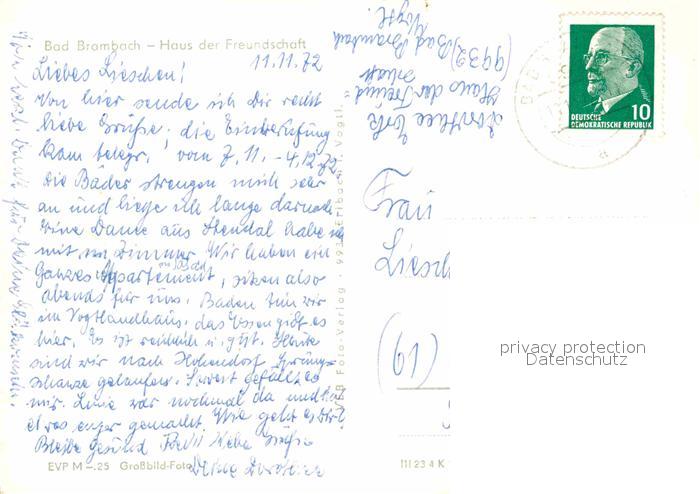 Bad Brambach – Haus der Freundschaft
11.11.72
Liebes Lieschen!
Von hier sende ich Dir recht
liebe Grüße, die Einberufung
kam telegr., vom 7.11. - 4.12.72
Die Bäder strengen mich sehr
an und liege ich lange darnach
Eine Dame aus Stendal habe ich
mit im Zimmer. Wir haben ein
Ganzes Appartement, sitzen also
abends für uns. Baden tun wir
im Vogtlandhaus, das Essen gibt es
hier. Es ist reichlich u. gut. Heute
sind wir nach Hohendorf
schanze gelaufen. Soweit gefällt es
mir. war nochmal da und hat
etwas enger gemacht. Wie geht es Dir?
Bleibe gesund liebe Grüße
Deine Dorothee
EVP M –.25 Großbild-Foto
VEB Foto-Verlag · 993 Erlbach i. Vogtl.
III 23 4 K
Dorothee
Haus der Freund
schaft
(9932) Bad Brambach
Vogtl.
DEUTSCHE
DEMOKRATISCHE REPUBLIK 10
Frau
Liesch
(61)
privacy protection
Datenschutz